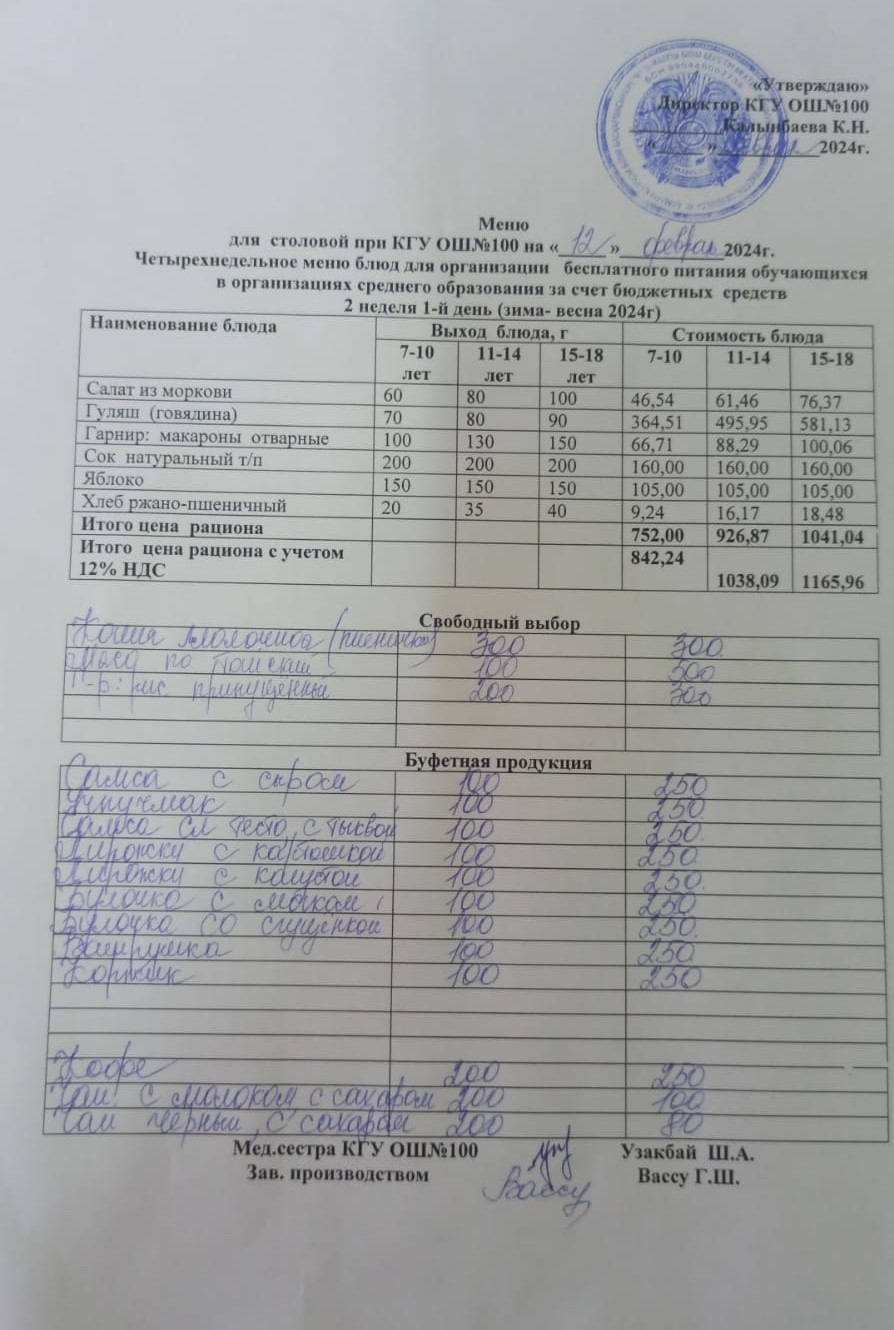 «Утверждаю»
Директор КГУ ОШ№100
Калынбаева К.Н.
« » феврал 2024г.
Меню
для столовой при КГУ ОШ№100 на « 12 » феврал 2024г.
Четырехнедельное меню блюд для организации бесплатного питания обучающихся
в организациях среднего образования за счет бюджетных средств
2 неделя 1-й день (зима- весна 2024г)
Наименование блюда Выход блюда, г Стоимость блюда
7-10 лет 11-14 лет 15-18 лет 7-10 11-14 15-18
Салат из моркови 60 80 100 46,54 61,46 76,37
Гуляш (говядина) 70 80 90 364,51 495,95 581,13
Гарнир: макароны отварные 100 130 150 66,71 88,29 100,06
Сок натуральный т/п 200 200 200 160,00 160,00 160,00
Яблоко 150 150 150 105,00 105,00 105,00
Хлеб ржано-пшеничный 20 35 40 9,24 16,17 18,48
Итого цена рациона 752,00 926,87 1041,04
Итого цена рациона с учетом 842,24
12% НДС 1038,09 1165,96
Свободный выбор
Каша молочная 300 300
Мясо по тайский 100 500
Г-р: рис припущенный 200 300
Буфетная продукция
Самса с сыром 100 250
Учпучмак 100 250
Самса сл тесто с тыквой 100 250
Пирожки с картошкой 100 250
Пирожки с капустой 100 250
Булочка с маком 100 250
Булочка со сгущенкой 100 250
Ватрушка 100 250
Коржик 100 250
Кофе 200 250
Чай с молоком с сахаром 200 100
Чай черный с сахаром 200 80
Мед.сестра КГУ ОШ№100 Узакбай Ш.А.
Зав. производством Вассу Вассу Г.Ш.